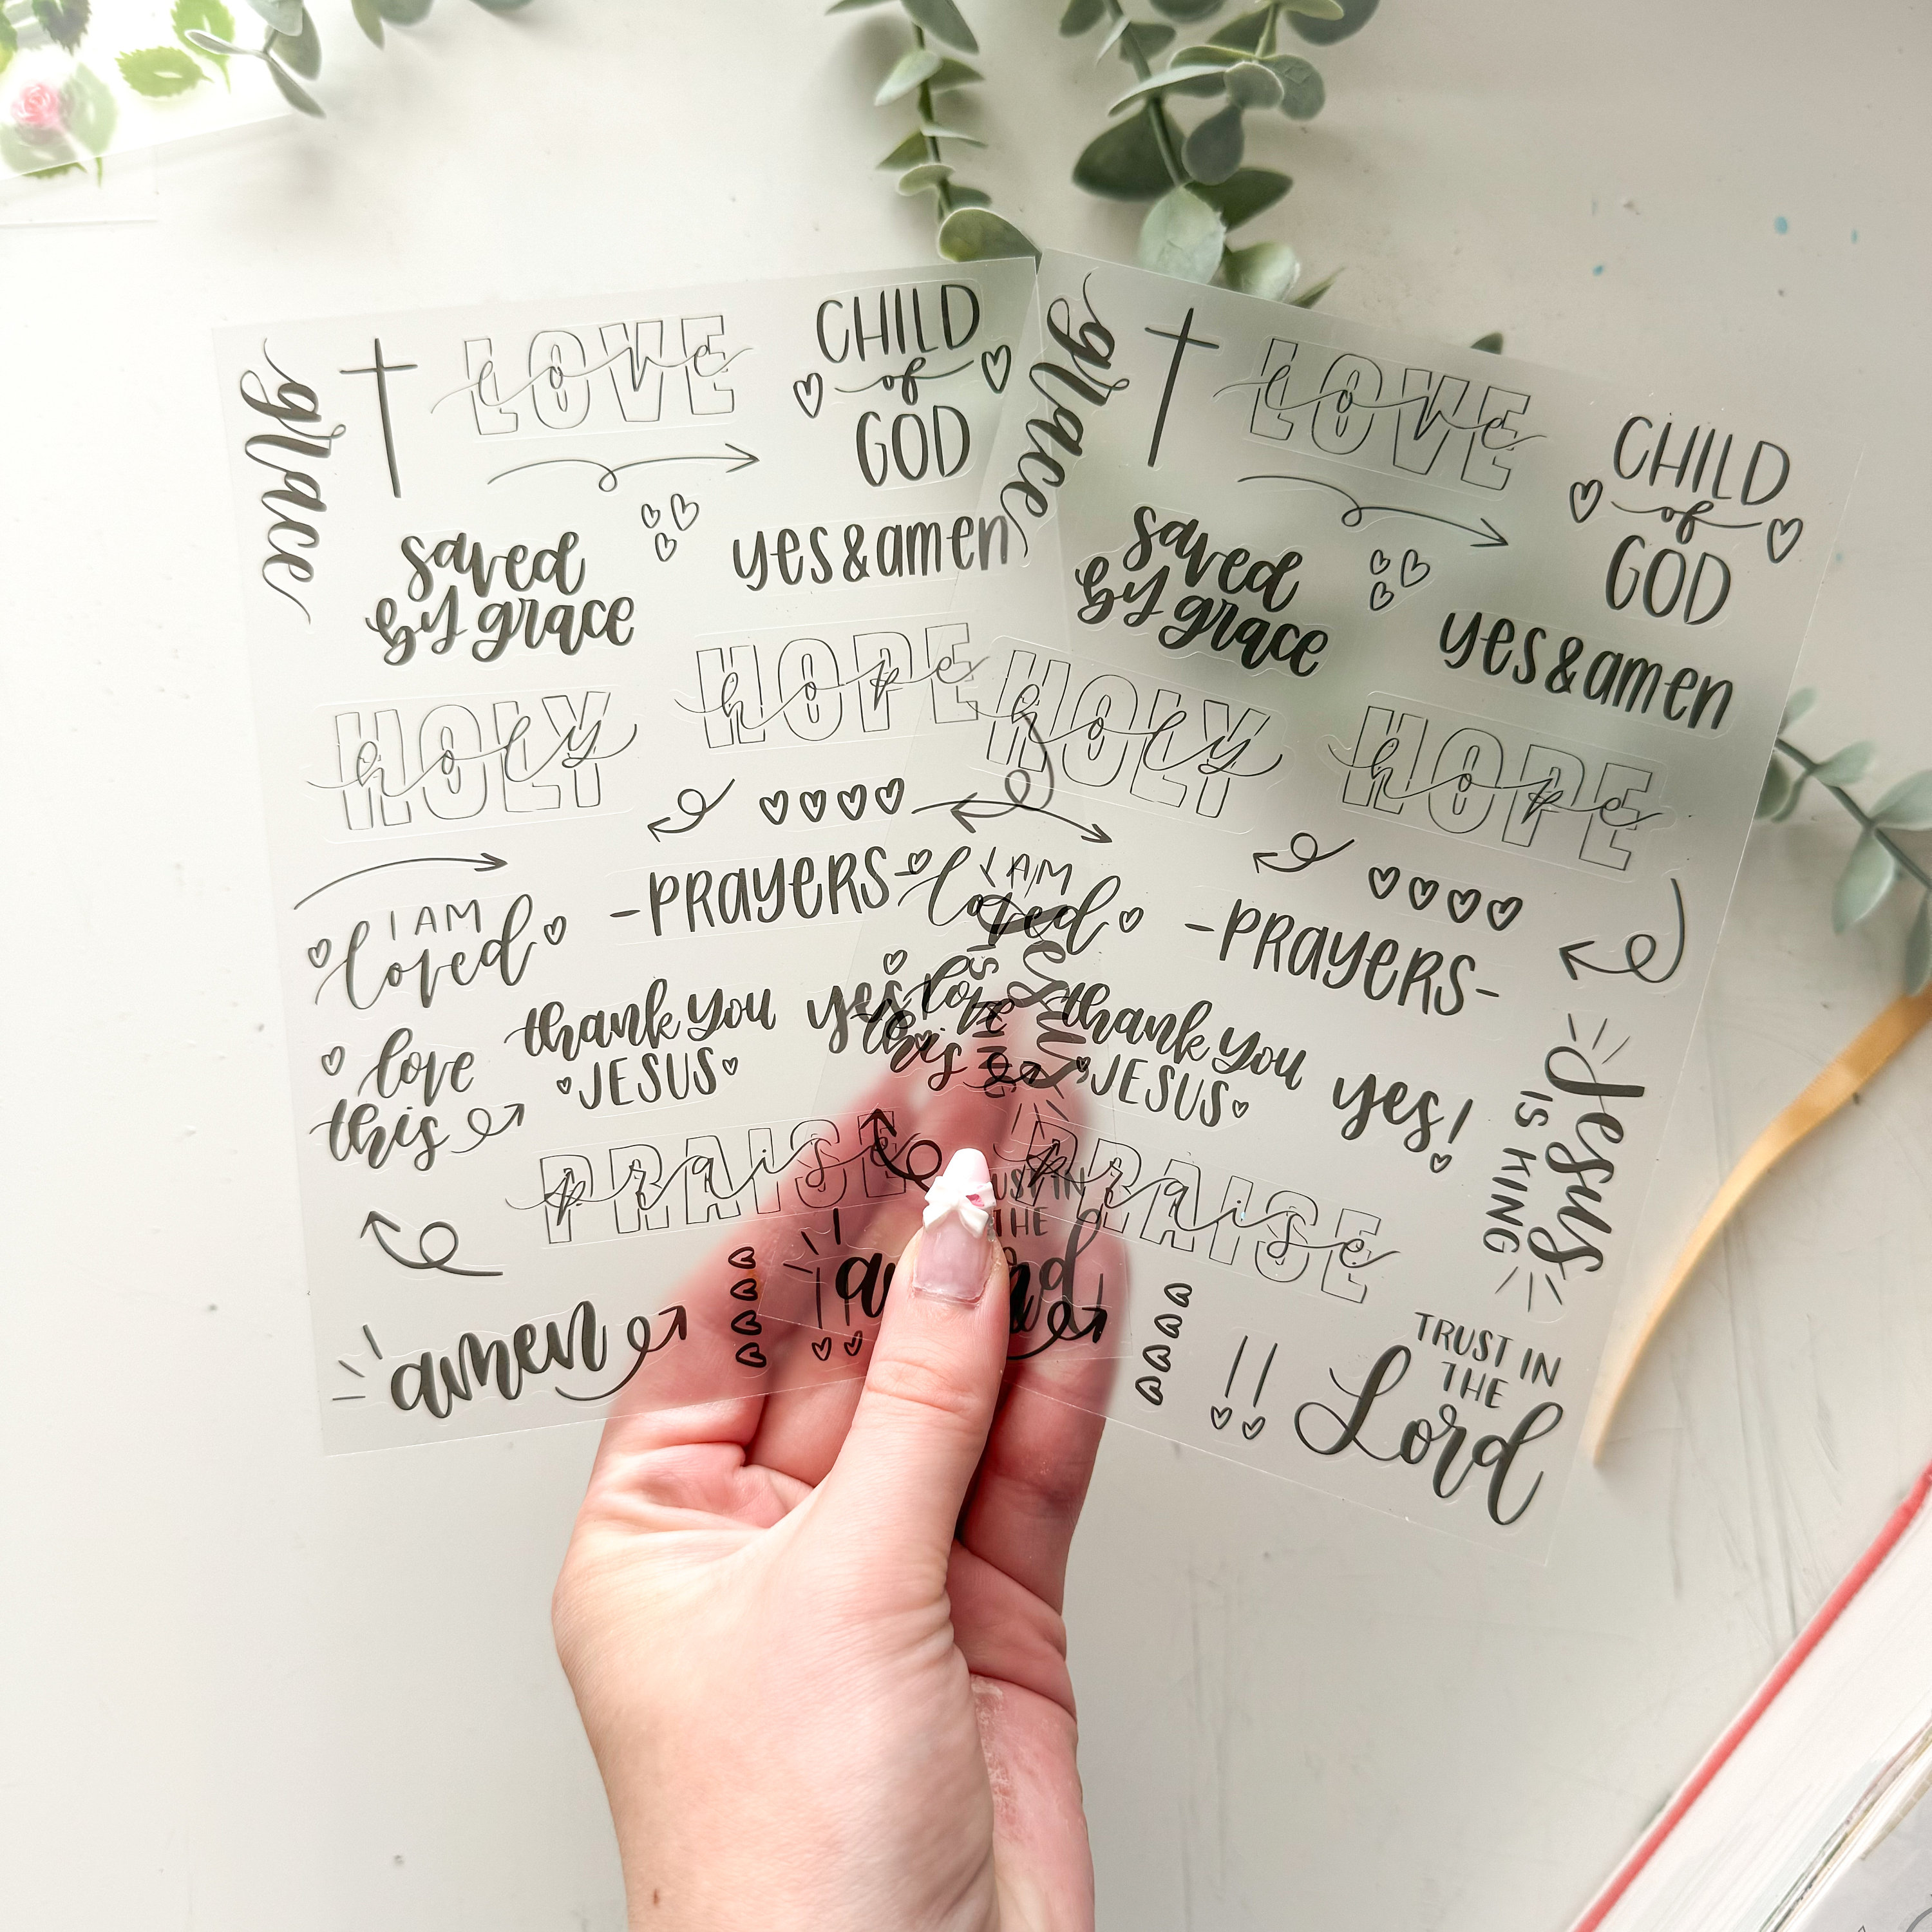 grace
LOVE
love
CHILD
of
GOD
saved
by grace
yes & amen
HOLY
holy
HOPE
hope
I AM
loved
-PRAYERS-
love
this
thank you
JESUS
yes
PRAISE
praise
amen
grace
LOVE
love
CHILD
of
GOD
saved
by grace
yes & amen
HOLY
holy
HOPE
hope
I AM
loved
-PRAYERS-
love
this
thank you
JESUS
yes!
Jesus
IS KING
PRAISE
praise
!!
TRUST IN
THE
Lord